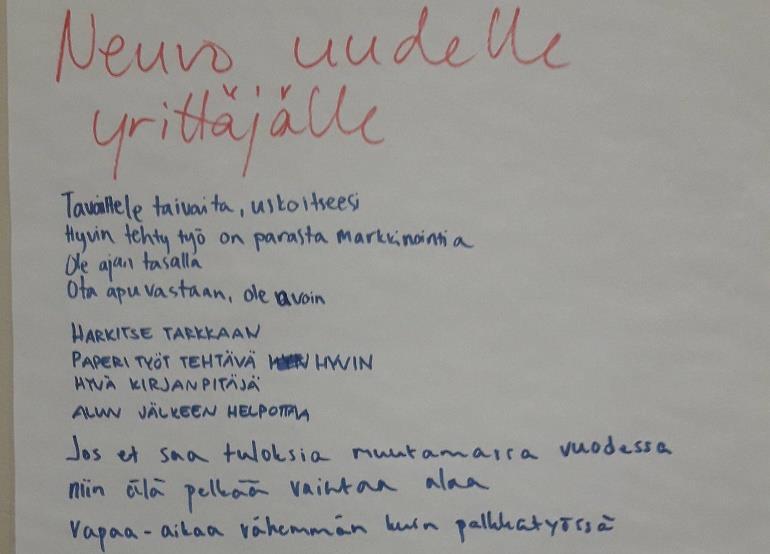 Neuvo uudelle
yrittäjälle
Tavoittele taivaita, usko itseesi
Hyvin tehty työ on parasta markkinointia
Ole ajan tasalla
Ota apu vastaan, ole avoin
HARKITSE TARKKAAN
PAPERITYÖT TEHTÄVÄ HYVIN
HYVÄ KIRJANPITÄJÄ
ALUN JÄLKEEN HELPOTTAA
Jos et saa tuloksia muutamassa vuodessa
niin älä pelkää vaihtaa alaa
Vapaa-aikaa vähemmän kuin palkkatyössä